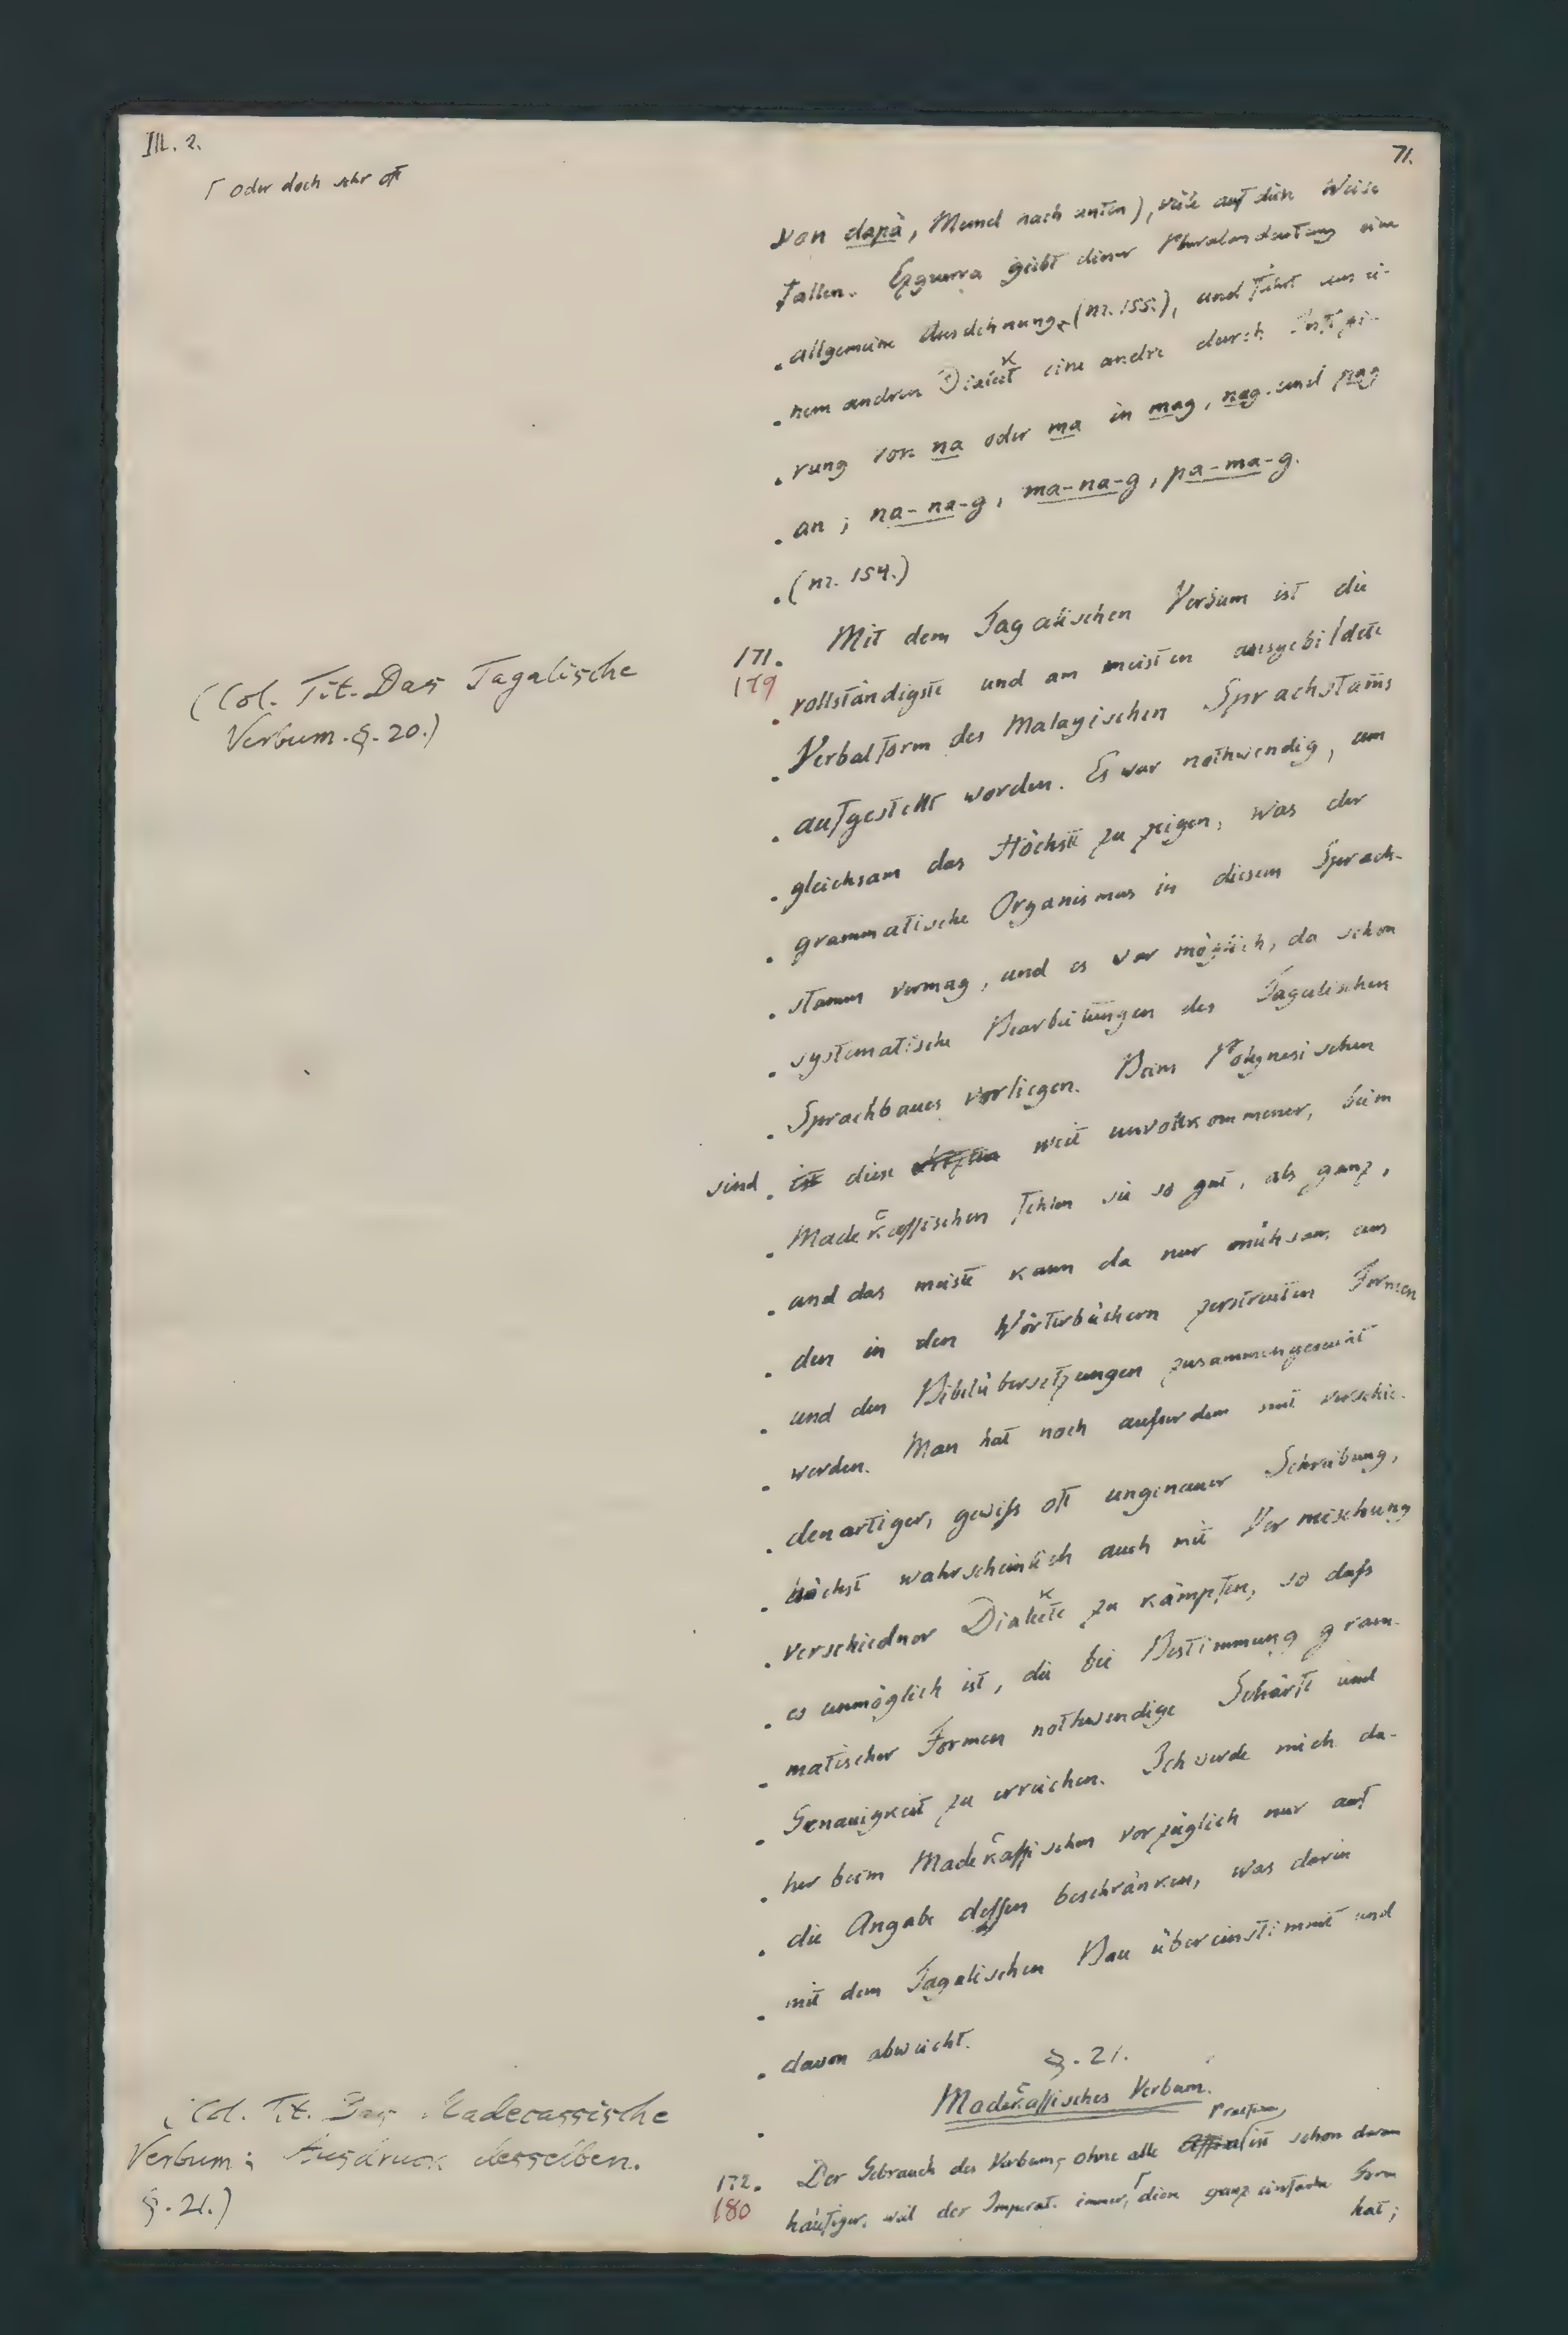 III. 2.
71.
⌈ oder doch sehr oft
von dapà, Mund nach unten), viele auf diese Weise
fallen. Ezguerra giebt dieser Pluralandeutung eine
allgemeine Ausdehnung (nr. 155.), und führt aus ei-
nem andren Dialekt eine andre durch
rung von na oder ma in mag, nag und pag
an; na-na-g, ma-na-g, pa-ma-g.
(nr. 154.)
(Col. Tit. Das Tagalische
Verbum. §. 20.)
171.
179
Mit dem Tagalischen Verbum ist die
vollständigste und am meisten ausgebildete
Verbalform des Malayischen Sprachstam̄s
aufgestellt worden. Es war nothwendig, um
gleichsam das Höchste zu zeigen, was der
grammatische Organismus in diesem Sprach-
stamm vermag, und es war möglich, da schon
systematische Bearbeitungen des Tagalischen
Sprachbaues vorliegen. Beim Polynesischen
sind ist diese weit unvollkommener, beim
Madecassischen fehlen sie so gut, als ganz,
und das meiste kann da nur mühsam aus
den in den Wörterbüchern zerstreuten Formen
und den Bibelübersetzungen zusammengesucht
werden. Man hat noch ausserdem mit verschie-
denartiger, gewiss oft ungenauer Schreibung,
höchst wahrscheinlich auch mit Vermischung
verschiedner Dialekte zu kämpfen, so dass
es unmöglich ist, die bei Bestimmung gram-
matischer Formen nothwendige Schärfe und
Genauigkeit zu erreichen. Ich werde mich da-
her beim Madecassischen vorzüglich nur auf
die Angabe dessen beschränken, was darin
mit dem Tagalischen Bau übereinstimmt und
davon abweicht.
§. 21.
Madecassisches Verbum.
(Col. Tit. Das Madecassische
Verbum; Ausdruck desselben.
§. 21.)
172.
180
Praefixe
Der Gebrauch des Verbums ohne alle Affixa ist schon darum
häufiger, weil der Imperat. immer,⌈ diese ganz einfache Form
hat;